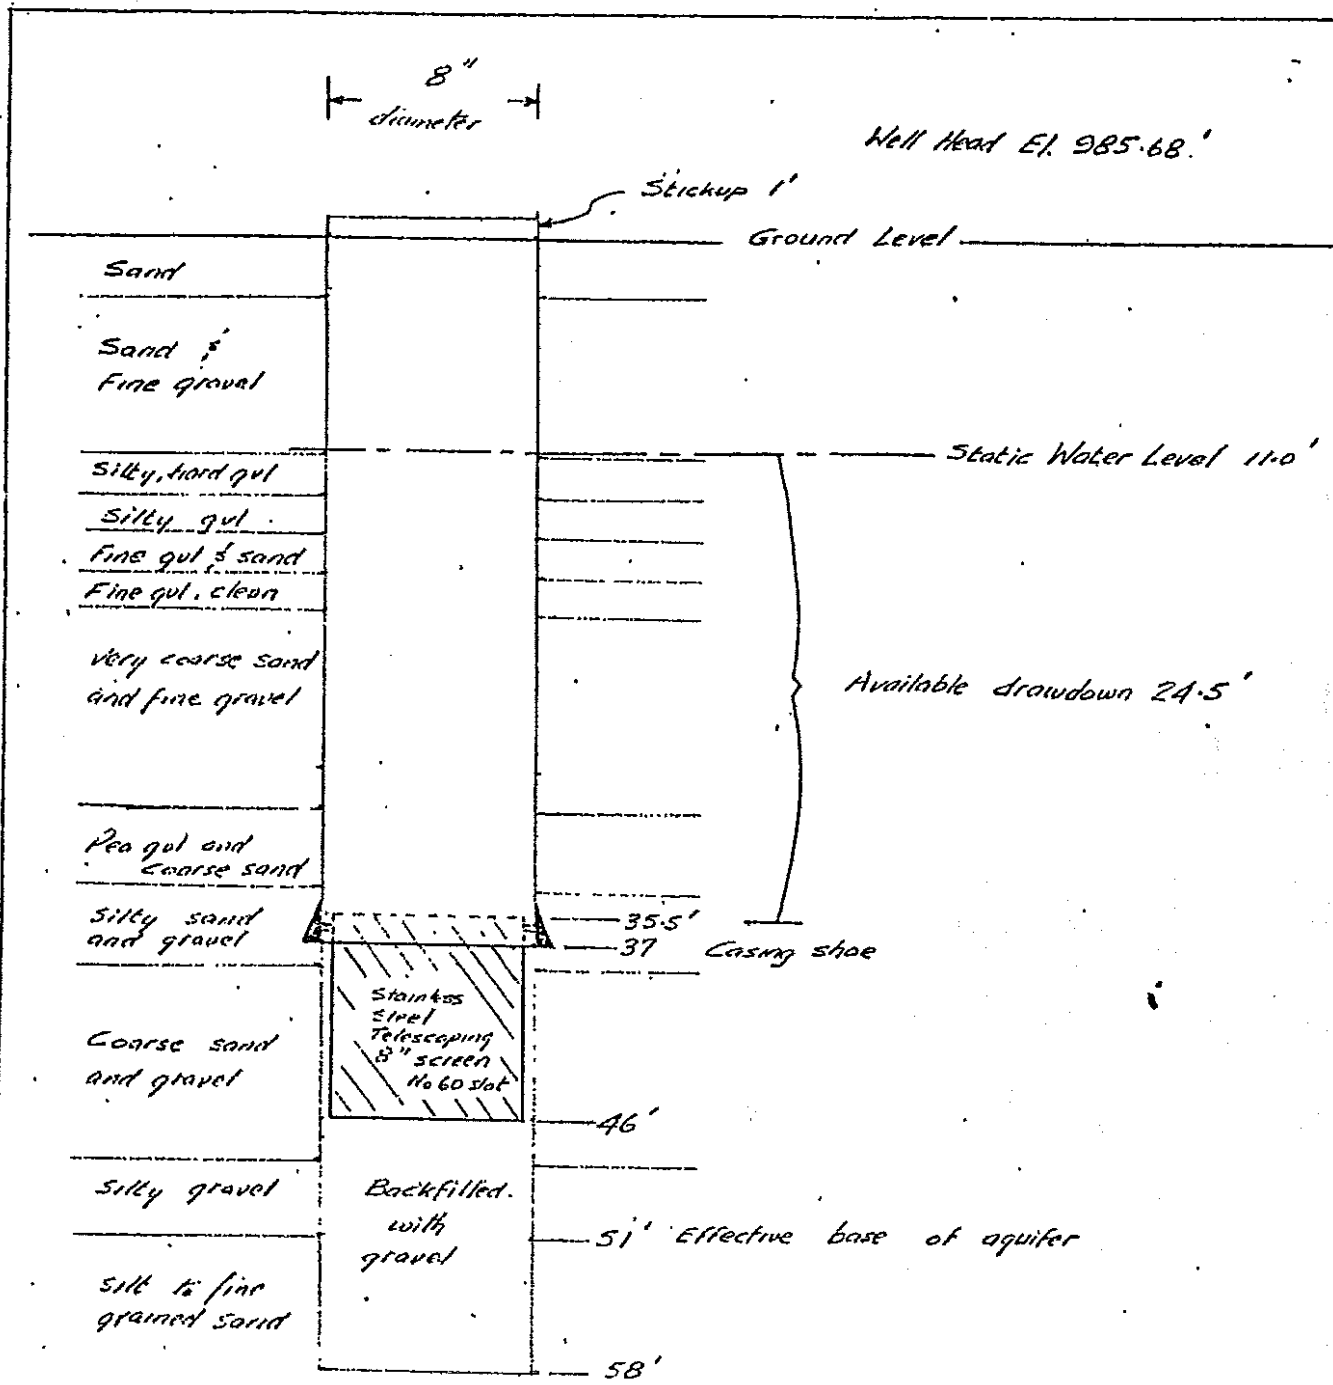 8"
diameter
Well Head El. 985.68'
Stickup 1'
Ground Level
Sand
Sand &
Fine gravel
Static Water Level 11.0'
Silty, hard gvl
Silty gvl
Fine gvl & sand
Fine gvl. clean
Very coarse sand
and fine gravel
Available drawdown 24.5'
Pea gvl and
coarse sand
Silty sand
and gravel
35.5'
37 Casing shoe
Stainless
Steel
Telescoping
8" screen
No 60 slot
Coarse sand
and gravel
46'
Silty gravel
Backfilled.
with
gravel
51' Effective base of aquifer
Silt to fine
grained sand
58'